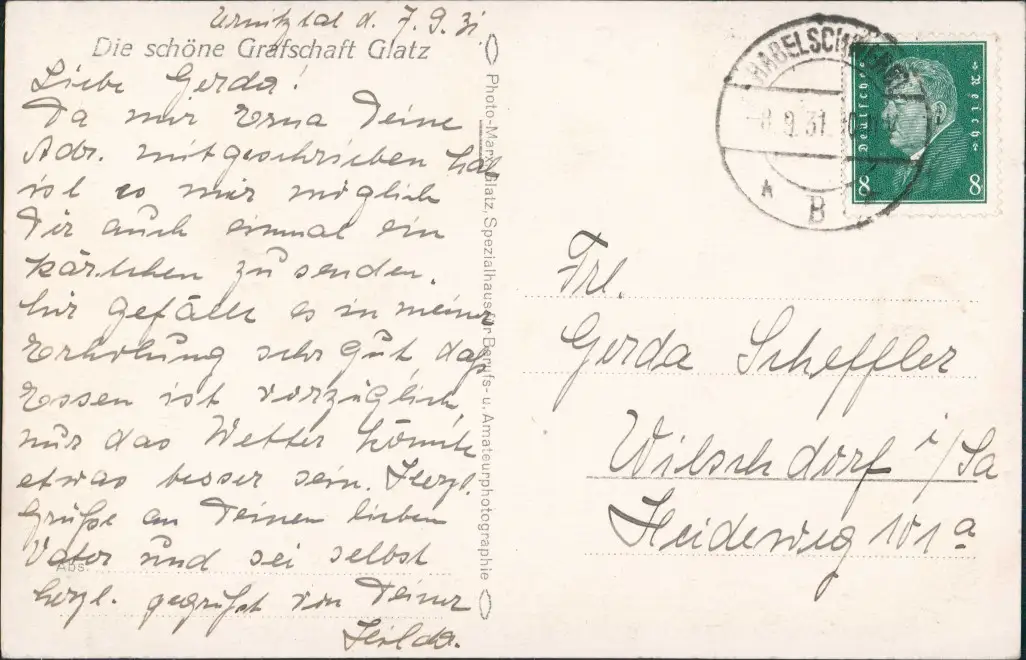 Urnitztal d. 7.9.31.
Die schöne Grafschaft Glatz
Liebe Gerda!
Da mir Erna Deine
Adr. mitgeschrieben hat
ist es mir möglich
Dir auch einmal ein
Kärtchen zu senden.
Mir gefällt es in meiner
Erholung sehr gut das
Essen ist vorzüglich,
nur das Wetter könnte
etwas besser sein. Herzl.
Grüße an Deinen lieben
Vater und sei selbst
Abs.
herzl. gegrüßt von Deiner
Hilda.
Photo-Marx, Glatz, Spezialhaus für Berufs- u. Amateurphotographie
HABELSCHWERDT
8.9.31.
* B
Deutsches Reich
8 8
Frl.
Gerda Scheffler
Wilschdorf i/Sa
Heideweg 101a